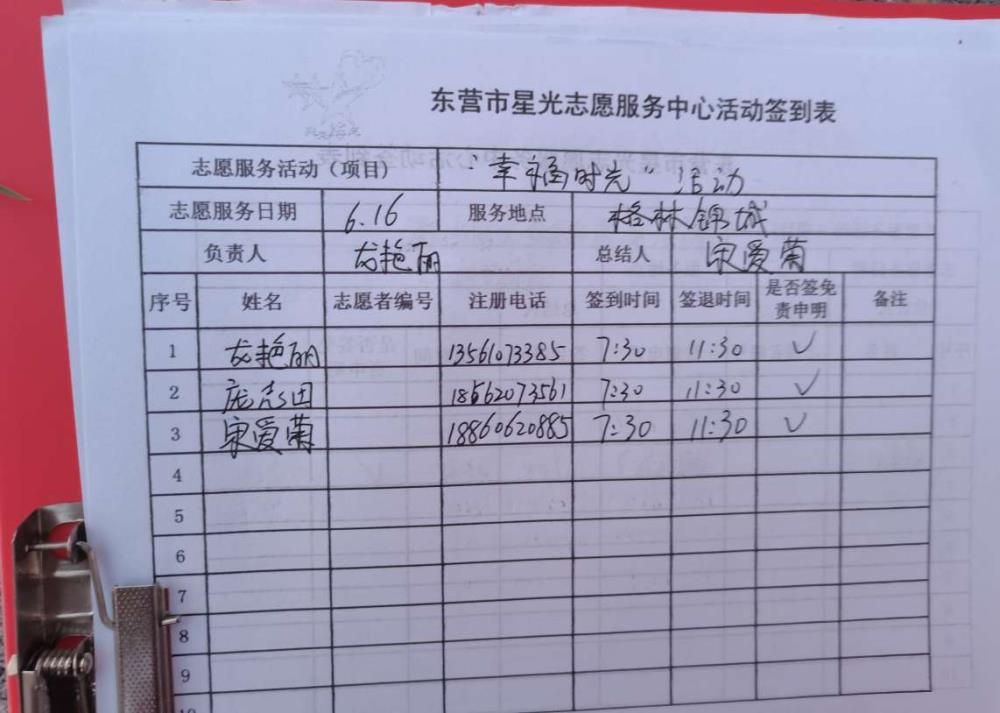 东营市星光志愿服务中心活动签到表
志愿服务活动（项目） “幸福时光”活动
志愿服务日期 6.16 服务地点 格林锦城
负责人 龙艳丽 总结人 宋爱菊
序号 姓名 志愿者编号 注册电话 签到时间 签退时间 是否签免责申明 备注
1 龙艳丽 13561073385 7:30 11:30 ✓
2 庞志田 18562073561 7:30 11:30 ✓
3 宋爱菊 18860620885 7:30 11:30 ✓
4
5
6
7
8
9
10